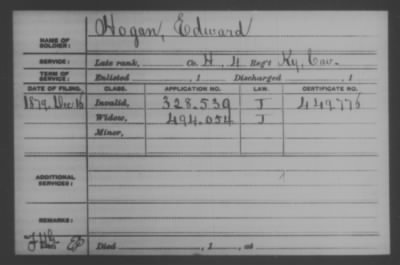 NAME OF SOLDIER: Hogan, Edward
SERVICE: Late rank, Co. H, 4 Reg't Ky. Cav.
TERM OF SERVICE: Enlisted , 1 Discharged , 1
DATE OF FILING. CLASS. APPLICATION NO. LAW. CERTIFICATE NO.
1879, Dec 16 Invalid, 328.539 J 449.776
Widow, 494.054 J
Minor,
ADDITIONAL SERVICES:
REMARKS:
Died , 1 , at